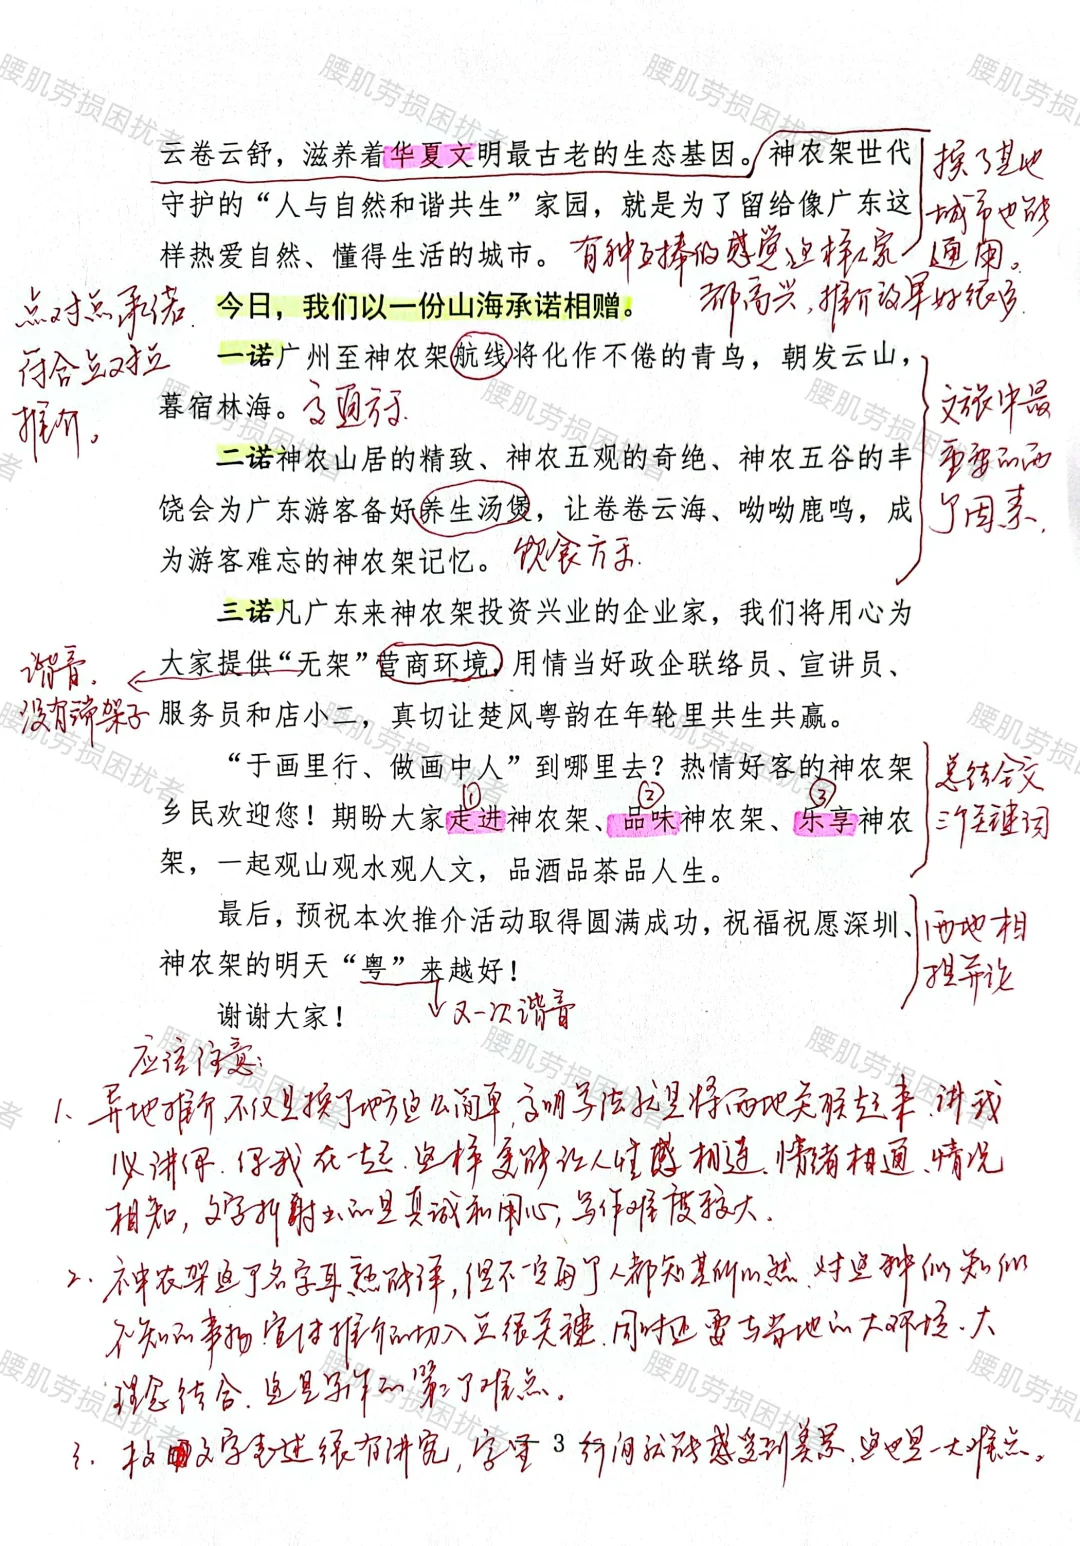 云卷云舒，滋养着华夏文明最古老的生态基因。神农架世代
守护的“人与自然和谐共生”家园，就是为了留给像广东这
样热爱自然、懂得生活的城市。
有种互捧的感觉这样大家
都高兴，推介效果好很多.
换了其他
城市也能
通用。
今日，我们以一份山海承诺相赠。
点对点承诺.
符合点对点
推介。
一诺广州至神农架航线将化作不倦的青鸟，朝发云山，
暮宿林海。
交通方于.
二诺神农山居的精致、神农五观的奇绝、神农五谷的丰
饶会为广东游客备好养生汤煲，让卷卷云海、呦呦鹿鸣，成
为游客难忘的神农架记忆。
饮食方于.
文旅中最
重要的两
个因素.
三诺凡广东来神农架投资兴业的企业家，我们将用心为
大家提供“无架”营商环境，用情当好政企联络员、宣讲员、
服务员和店小二，真切让楚风粤韵在年轮里共生共赢。
谐音.
没有神架子
“于画里行、做画中人”到哪里去？热情好客的神农架
乡民欢迎您！期盼大家走进神农架、品味神农架、乐享神农
架，一起观山观水观人文，品酒品茶品人生。
① ② ③
总结全文
三个关键词
最后，预祝本次推介活动取得圆满成功，祝福祝愿深圳、
神农架的明天“粤”来越好！
两地相
提并论
谢谢大家！
又一次谐音
应该注意：
1. 异地推介不仅是换了地方这么简单，高明写法就是将两地关联起来、讲我
必讲你.你我在一起.这样更能让人性感相连、情绪相通、情况
相知，文字折射出的是真诚和用心，写作难度较大.
2. 神农架这个名字耳熟能详，但不一定每个人都知其所以然.对这种似知似
不知的事物.宣传推介的切入点很关键.同时还要与当地的大环境、大
理念结合.这是写作的第二个难点。
3. 文字表述很有讲究，字里行间就能感受到美景.这也是一大难点。
3
腰肌劳损困扰者